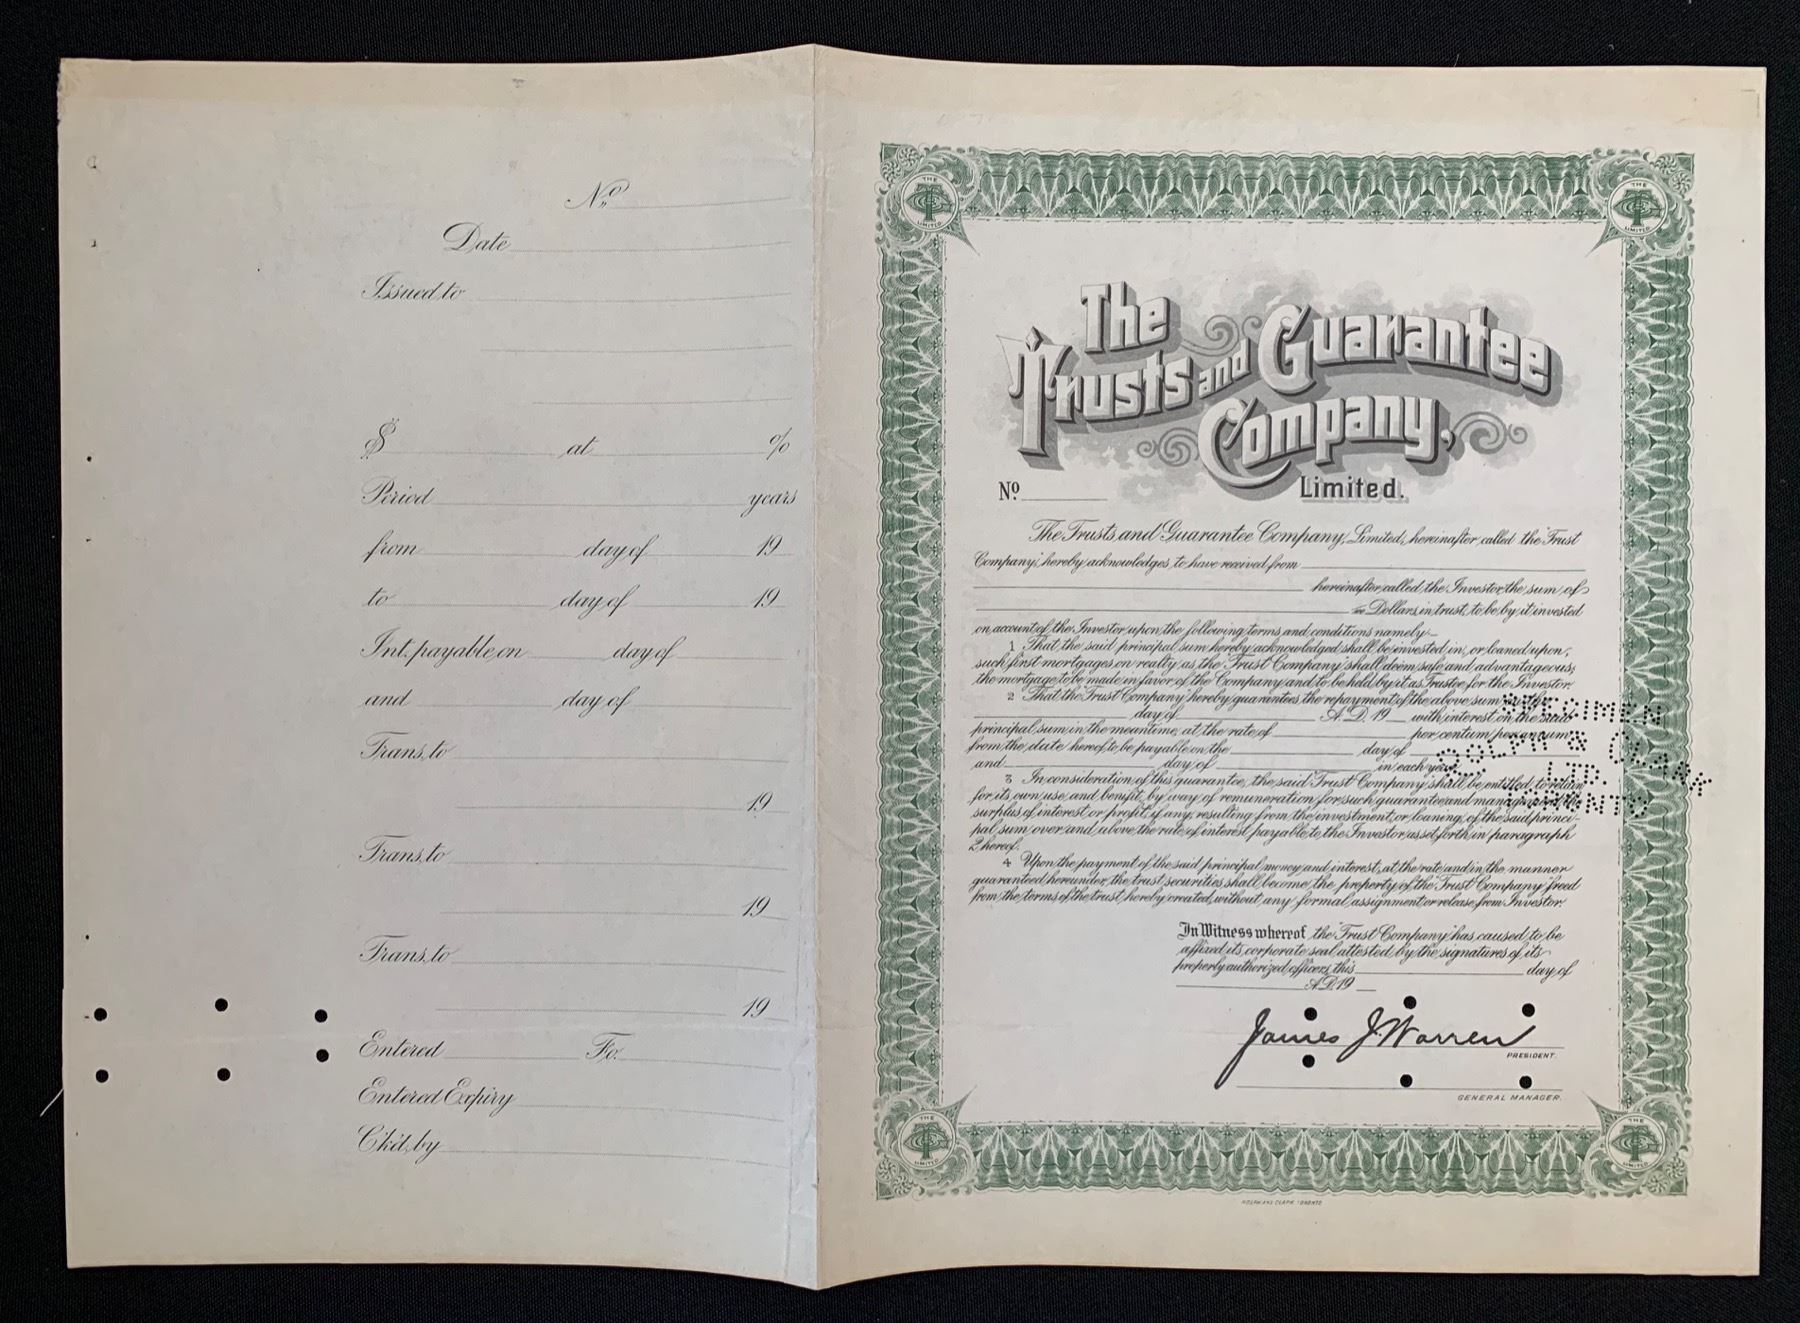 No
Date
Issued to
$ at %
Period years
from day of 19
to day of 19
Int. payable on day of
and day of
Trans. to
19
Trans. to
19
Trans. to
19
Entered Fo.
Entered Expiry
Ck'd. by
THE
LIMITED
THE
LIMITED
The
Trusts and Guarantee
Company,
Limited.
No.
The Trusts and Guarantee Company, Limited, hereinafter called the "Trust
Company", hereby acknowledges to have received from
hereinafter called the Investor, the sum of
Dollars, in trust, to be by it invested
on account of the Investor upon the following terms and conditions namely:—
1 That the said principal sum hereby acknowledged shall be invested in, or loaned upon,
such first mortgages on realty as the "Trust Company" shall deem safe and advantageous;
the mortgage to be made in favor of the Company and to be held by it as Trustee for the Investor.
2 That the "Trust Company" hereby guarantees the repayment of the above sum on the
day of A.D. 19 with interest on the said
principal sum in the meantime, at the rate of per centum per annum
from the date hereof to be payable on the day of
and day of in each year.
3 In consideration of this guarantee, the said "Trust Company" shall be entitled to retain
for its own use and benefit, by way of remuneration for such guarantee and management the
surplus of interest or profit, if any, resulting from the investment or loaning of the said princi-
pal sum over and above the rate of interest payable to the Investor as set forth in paragraph
2 hereof.
4 Upon the payment of the said principal money and interest, at the rate and in the manner
guaranteed hereunder, the trust securities shall become the property of the "Trust Company" freed
from the terms of the trust hereby created, without any formal assignment or release from Investor.
SPECIMEN
ROLPH & CLARK
LTD.
TORONTO
In Witness whereof the "Trust Company" has caused to be
affixed its corporate seal attested by the signatures of its
properly authorized officers, this day of
A.D. 19
James J. Warren
PRESIDENT.
GENERAL MANAGER.
THE
LIMITED
THE
LIMITED
ROLPH AND CLARK. TORONTO